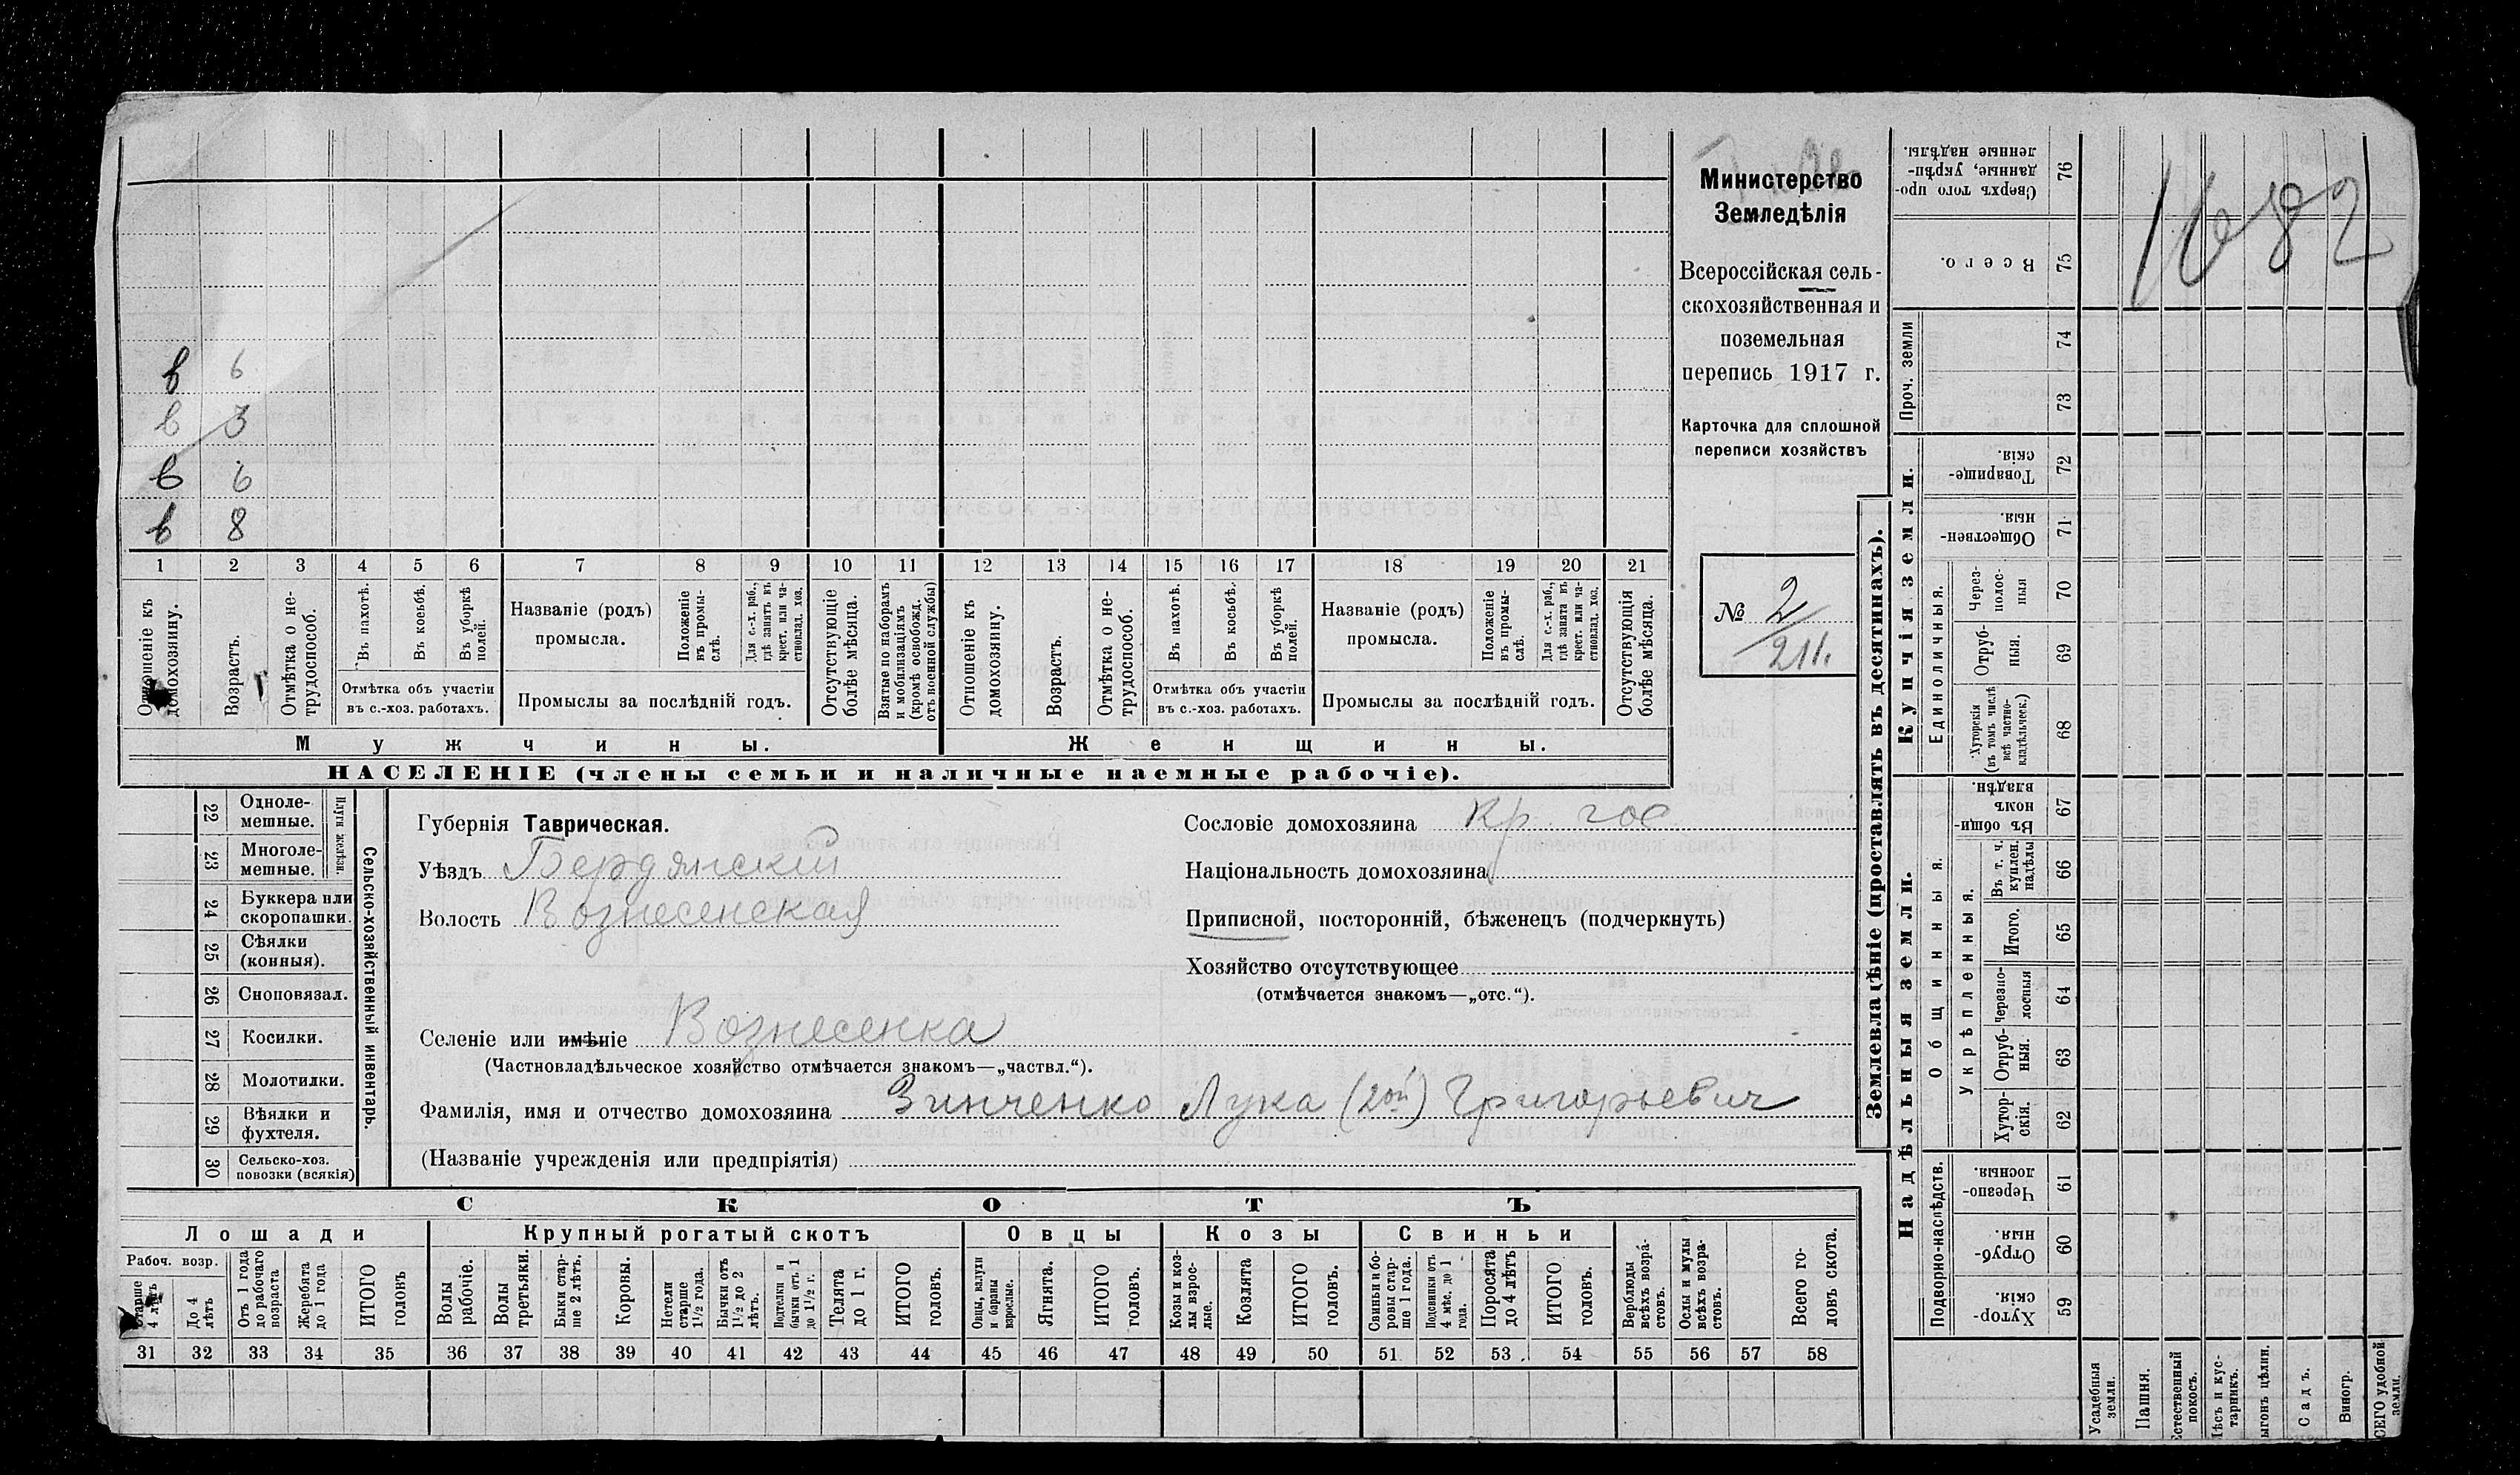 Министерство
Земледѣлія
Всероссійская сель-
скохозяйственная и
поземельная
перепись 1917 г.
Карточка для сплошной
переписи хозяйствъ
№ 2/211.
1682
в 6
в 3
в 6
в 8
1 2 3 4 5 6 7 8 9 10 11 12 13 14 15 16 17 18 19 20 21
Отношеніе къ домохозяину.
Возрастъ.
Отмѣтка о не-
трудоспособ.
Въ пахотѣ.
Въ косьбѣ.
Въ уборкѣ
полей.
Отмѣтка объ участіи
въ с.-хоз. работахъ.
Названіе (родъ)
промысла.
Положеніе
въ промы-
слѣ.
Для с.-х. раб.,
гдѣ занятъ въ
крест. или ча-
стновлад. хоз.
Промыслы за послѣдній годъ.
Отсутствующіе
болѣе мѣсяца.
Взятые по наборамъ
и мобилизаціямъ
(кромѣ освобожд.
отъ военной службы)
Отношеніе къ
домохозяину.
Возрастъ.
Отмѣтка о не-
трудоспособ.
Въ пахотѣ.
Въ косьбѣ.
Въ уборкѣ
полей.
Отмѣтка объ участіи
въ с.-хоз. работахъ.
Названіе (родъ)
промысла.
Положеніе
въ промы-
слѣ.
Для с.-х. раб.,
гдѣ занята въ
крест. или ча-
стновлад. хоз.
Промыслы за послѣдній годъ.
Отсутствующія
болѣе мѣсяца.
Мужчины.
Женщины.
НАСЕЛЕНІЕ (члены семьи и наличные наемные рабочіе).
22 Одноле-
мешные.
23 Многоле-
мешные.
Плуги желѣзн.
24 Буккера или
скоропашки.
25 Сѣялки
(конныя).
26 Сноповязал.
27 Косилки.
28 Молотилки.
29 Вѣялки и
фухтеля.
30 Сельско-хоз.
повозки (всякія)
Сельско-хозяйственный инвентарь.
Губернія Таврическая.
Уѣздъ Бердянскій
Волость Вознесенская
Сословіе домохозяина кр. гос
Національность домохозяина
Приписной, посторонній, бѣженецъ (подчеркнуть)
Хозяйство отсутствующее
(отмѣчается знакомъ—„отс.“).
Селеніе или имѣніе Вознесенка
(Частновладѣльческое хозяйство отмѣчается знакомъ—„частвл.“).
Фамилія, имя и отчество домохозяина Зинченко Лука (2ой) Григорьевич
(Названіе учрежденія или предпріятія)
СКОТЪ
Лошади
Рабоч. возр.
Старше
4 лѣтъ
До 4
лѣтъ
Отъ 1 года
до рабочаго
возраста
Жеребята
до 1 года
ИТОГО
головъ
Крупный рогатый скотъ
Волы
рабочіе.
Волы
третьяки.
Быки стар-
ше 2 лѣтъ.
Коровы.
Нетели
старше
1½ года.
Бычки отъ
1½ до 2
лѣтъ.
Подтелки и
бычки отъ 1
до 1½ г.
Телята
до 1 г.
ИТОГО
головъ.
Овцы
Овцы, валухи
и бараны
взрослые.
Ягнята.
ИТОГО
головъ.
Козы
Козы и коз-
лы взрос-
лые.
Козлята
ИТОГО
головъ.
Свиньи
Свиньи и бо-
ровы стар-
ше 1 года.
Подсвинки отъ
4 мѣс. до 1
года.
Поросята
до 4 лѣтъ
ИТОГО
головъ.
Верблюды
всѣхъ возра-
стовъ.
Ослы и мулы
всѣхъ возра-
стовъ.
Всего го-
ловъ скота.
31 32 33 34 35 36 37 38 39 40 41 42 43 44 45 46 47 48 49 50 51 52 53 54 55 56 57 58
Землевладѣніе (проставлять въ десятинахъ).
Купчія земли.
Надѣльныя земли.
Сверхъ того про-
данные, укрѣп-
ленные надѣлы.
76
Всего.
75
Проч. земли
74
73
Товарище-
скія.
72
Обществен-
ныя.
71
Единоличныя.
Через-
полос-
ныя
70
Отруб-
ныя.
69
Хуторскія
(въ томъ числѣ
всѣ частно-
владѣльческ.)
68
Общинныя.
Въ общин-
номъ
владѣн.
67
Укрѣпленныя.
Въ т. ч.
куплен.
надѣлы
66
Итого.
65
Черезпо-
лосныя
64
Отруб-
ныя.
63
Хутор-
скія.
62
Подворно-наслѣдств.
Черезпо-
лосныя.
61
Отруб-
ныя.
60
Хутор-
скія.
59
Усадебныя
земли.
Пашня.
Естественный
покосъ.
Лѣсъ и кус-
тарникъ.
Выгонъ цѣлин.
Садъ.
Виногр.
ВСЕГО удобной
земли.